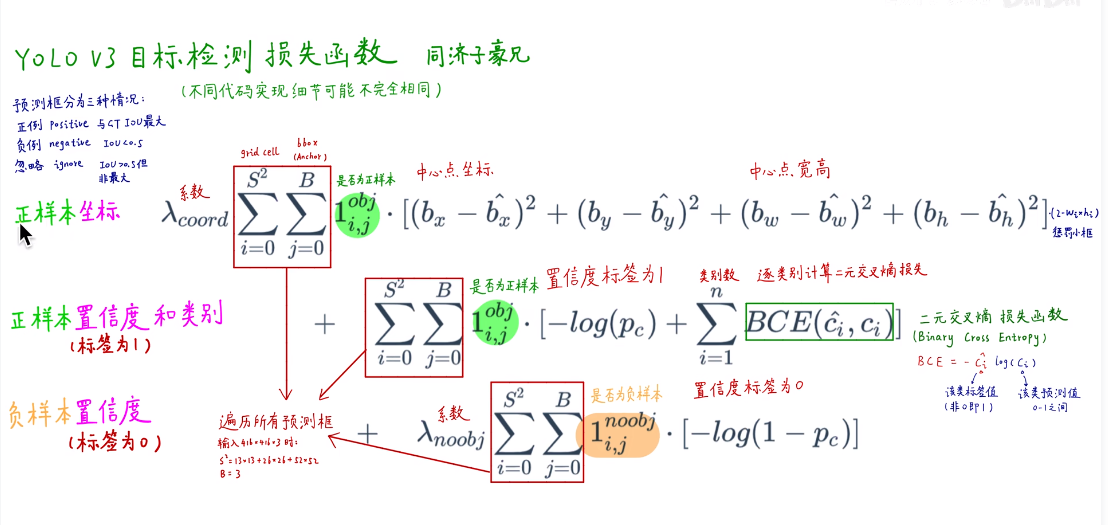 YOLO V3 目标检测 损失函数 同济子豪兄
(不同代码实现 细节可能 不完全相同)
预测框分为三种情况：
正例 positive 与GT IOU最大
负例 negative IOU<0.5
忽略 ignore IOU>0.5但
非最大
grid cell
bbox
(Anchor)
系数
是否为正样本
中心点坐标
中心点宽高
正样本坐标
λ_{coord} \sum_{i=0}^{S^2} \sum_{j=0}^{B} 1_{i,j}^{obj} · [(b_x − \hat{b_x})^2 + (b_y − \hat{b_y})^2 + (b_w − \hat{b_w})^2 + (b_h − \hat{b_h})^2]
(2-wi×hi)
惩罚小框
是否为正样本
置信度标签为1
类别数
逐类别计算二元交叉熵损失
正样本置信度和类别
(标签为1)
+ \sum_{i=0}^{S^2} \sum_{j=0}^{B} 1_{i,j}^{obj} · [−log(p_c) + \sum_{i=1}^{n} BCE(\hat{c_i}, c_i)]
二元交叉熵 损失函数
(Binary Cross Entropy)
BCE = - \hat{c_i} log(c_i)
该类标签值
(非0即1)
该类预测值
0-1之间
负样本置信度
(标签为0)
遍历所有预测框
输入416×416×3时：
S²=13×13+26×26+52×52
B=3
系数
是否为负样本
置信度标签为0
+ λ_{noobj} \sum_{i=0}^{S^2} \sum_{j=0}^{B} 1_{i,j}^{noobj} · [−log(1 − p_c)]